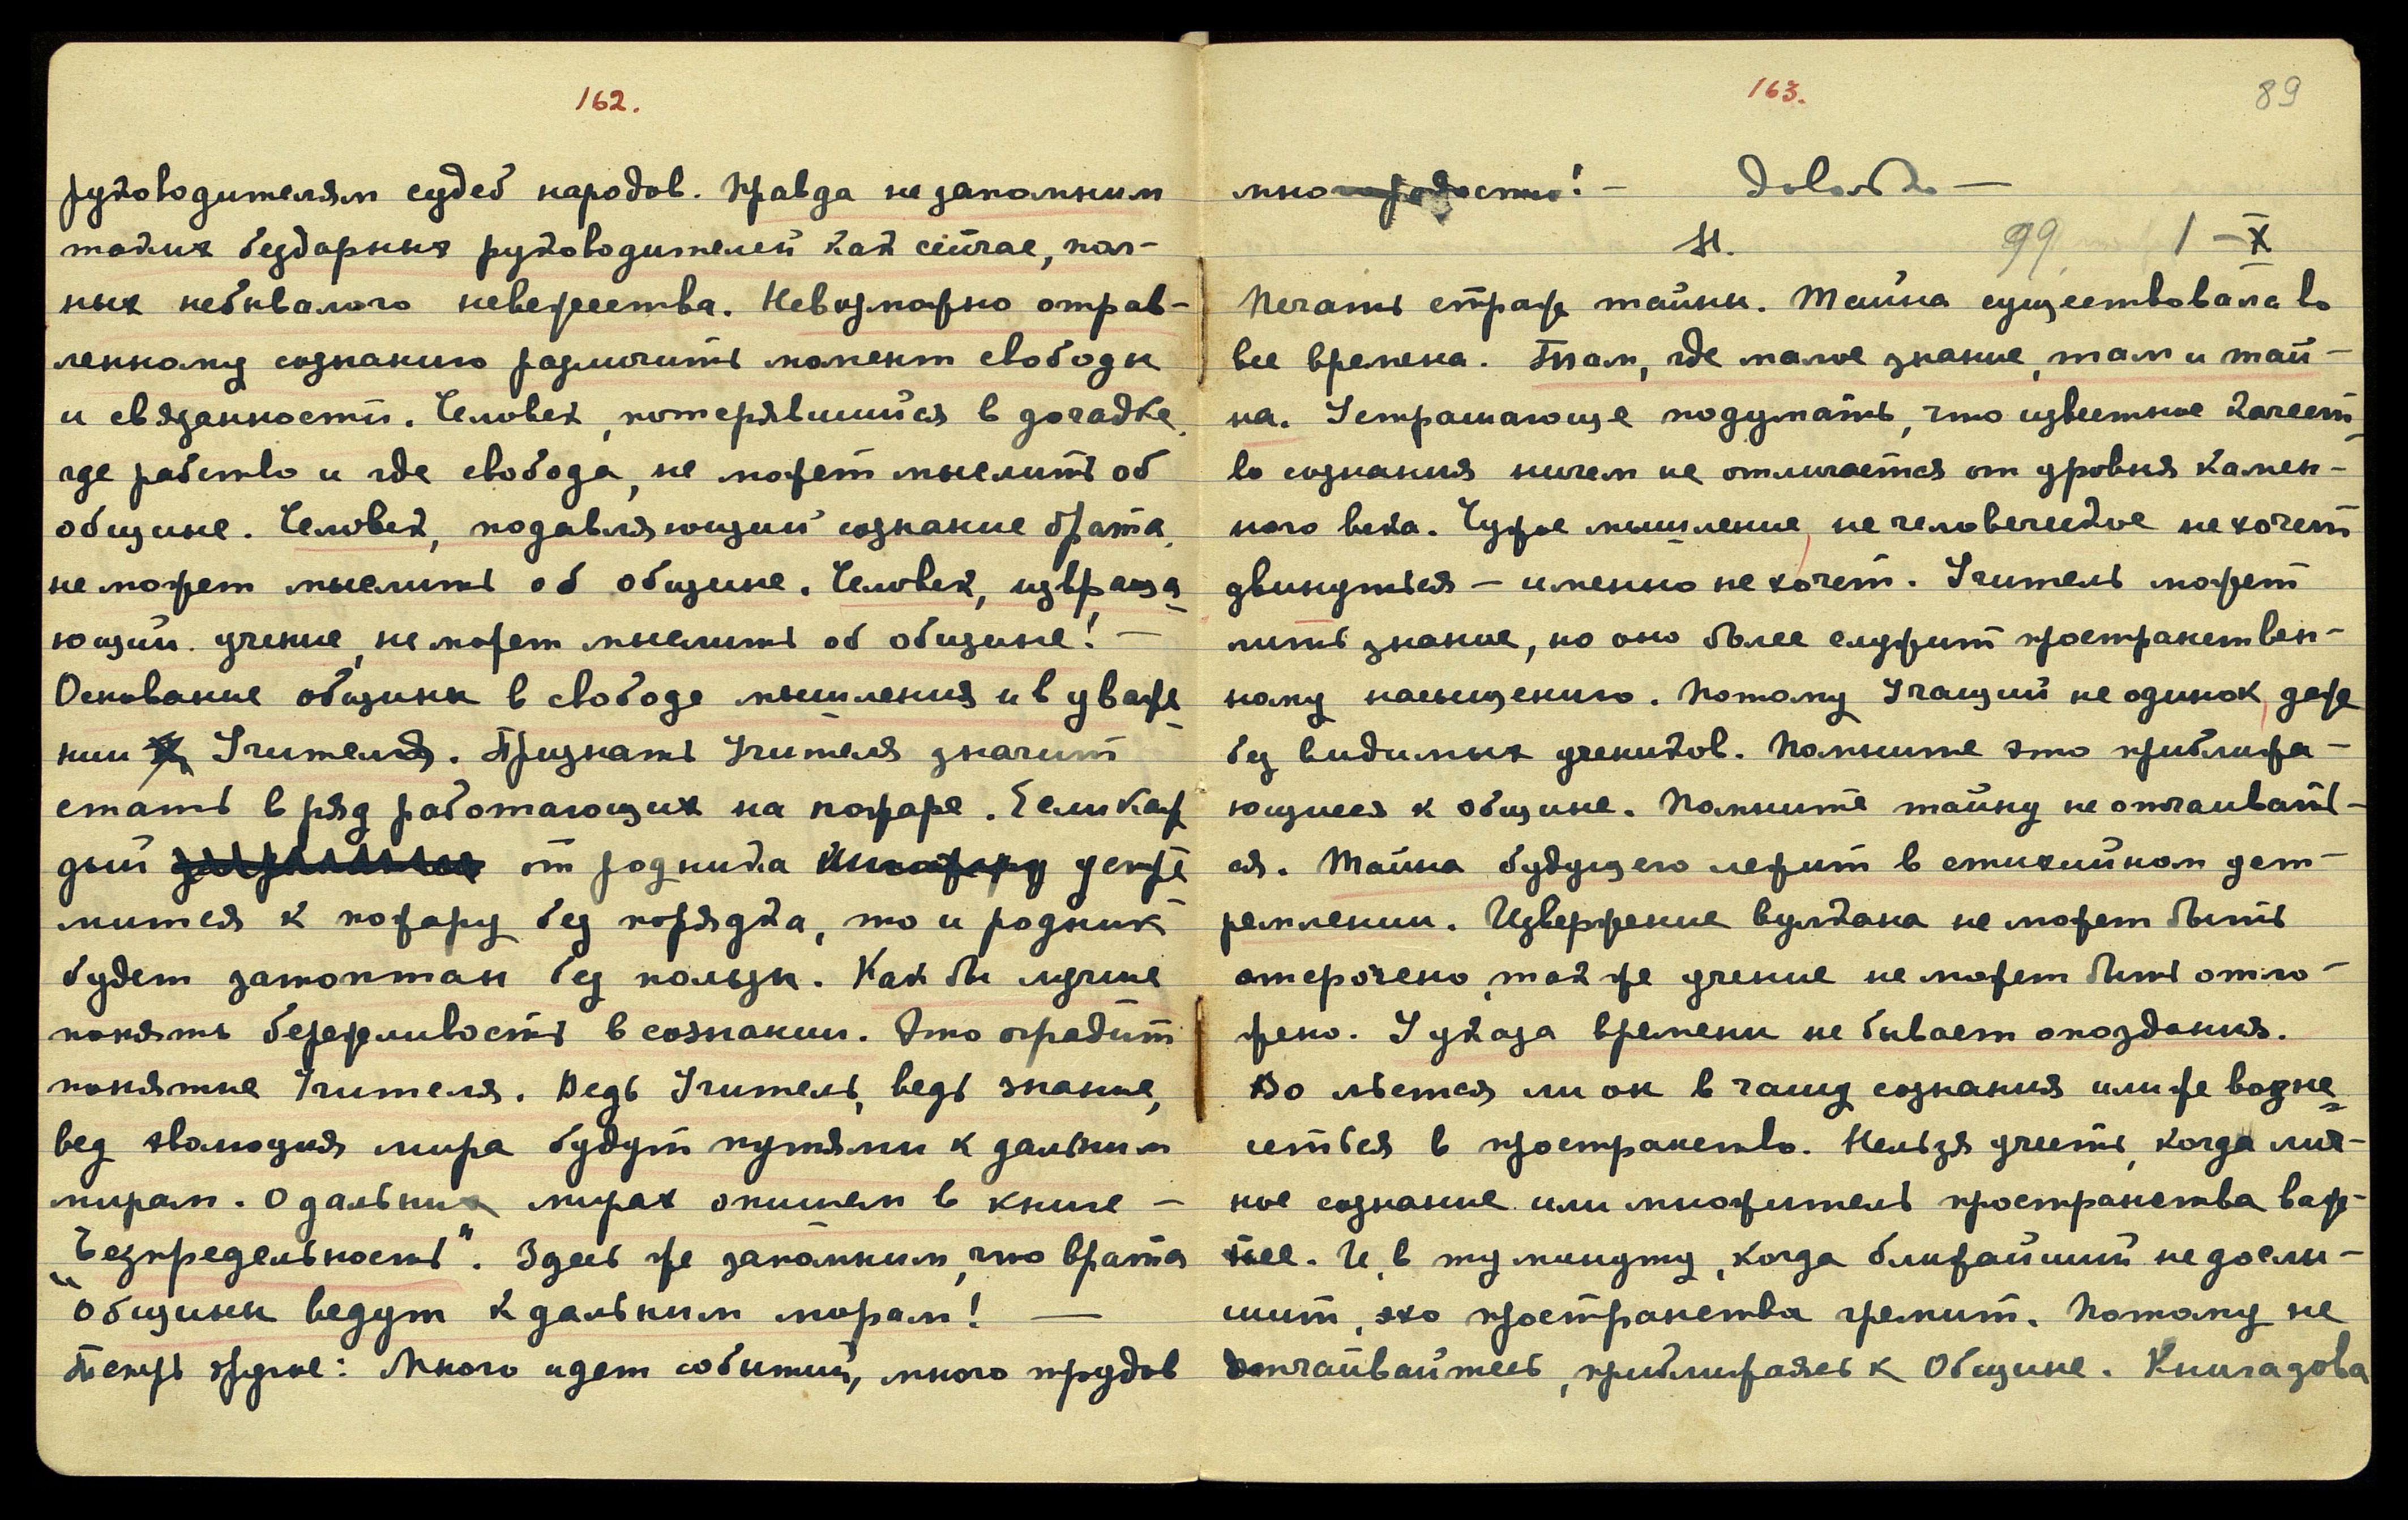 162.
руководителям судеб народов. Правда не запомним
таких бездарных руководителей как сейчас, пол-
ных небывалого невежества. Невозможно отрав-
ленному сознанию различить момент свободы
и связанности. Человек, потерявшийся в догадке,
где рабство и где свобода, не может мыслить об
общине. Человек, подавляющий сознание брата,
не может мыслить об общине. Человек, извраща-
ющий учение, не может мыслить об общине! —
Основание общины в свободе мышления и в уваже-
нии Учителя. Признать Учителя значит
стать в ряд работающих на пожаре. Если каж-
дый от родника устре-
мится к пожару без порядка, то и родник
будет затоптан без пользы. Как бы лучше
понять бережливость в сознании. Это оградит
понятие Учителя. Ведь Учитель, ведь знание,
вед эволюция мира будут путями к дальним
мирам. О дальних мирах опишем в книге —
„Безпредельность". Здесь же запомним, что врата
Общины ведут к дальним мирам! —
Теперь другое: Много идет событий, много трудов
163.
89
много радости! — Довольно —
99 1 – X
Печать страж тайны. Тайна существовала во
все времена. Там, где малое знание, там и тай-
на. Устрашающе подумать, что известное качест-
во сознания ничем не отличается от уровня камен-
ного века. Чужое мышление, не человеческое не хочет
двинуться — именно не хочет. Учитель может
лить знание, но оно более служит пространствен-
ному насыщению. Потому Учащий не одинок, даже
без видимых учеников. Помните это приближа-
ющиеся к общине. Помните тайну не отчаивать-
ся. Тайна будущего лежит в стихийном уст-
ремлении. Извержение вулкана не может быть
отсрочено, так же учение не может быть отло-
жено. У указа времени не бывает опоздания.
Во льется ли он в чашу сознания или же возне-
сеться в пространство. Нельзя учесть, когда лич-
ное сознание или множитель пространства важ-
нее. И, в ту минуту, когда ближайший не дослы-
шит, эхо пространства гремит. Потому не
отчаивайтесь, приближаясь к Общине. Книга зова